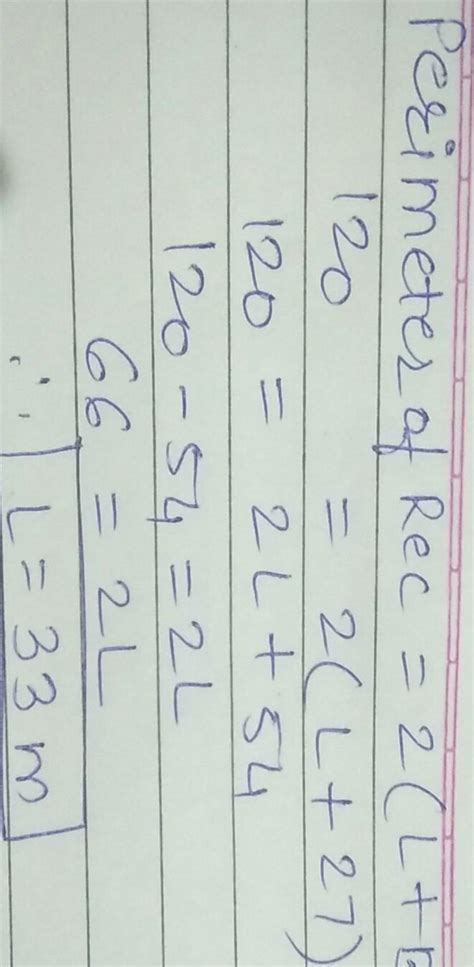 Perimeter of Rec = 2(L+
120 = 2(L+27)
120 = 2L+54
120-54=2L
66 = 2L
∴ L=33m